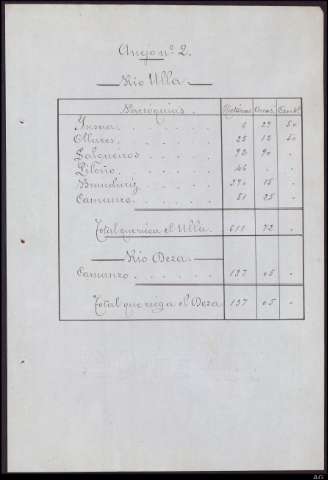 Anejo nº 2.
Rio Ulla.
Parroquias. Hectáreas Areas Cent.s
6 27 50
Olllares 25 12 50
Salgueiros 92 90 "
Piloño 46 " "
Brandariz 15 "
Camanzo 51 25 "
Total que riega el Ulla. 72 "
Rio Deza.
Camanzo. 137 05 "
Total que riega el Deza 137 05 "